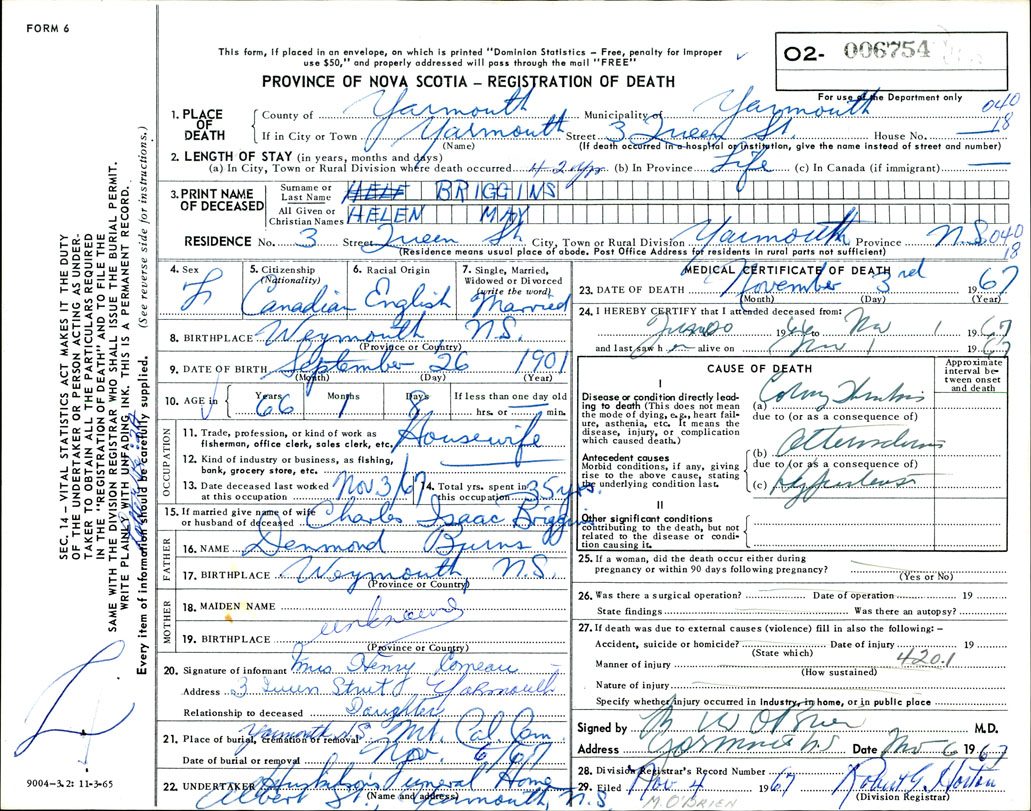 FORM 6
This form, if placed in an envelope, on which is printed "Dominion Statistics – Free, penalty for improper
use $50," and properly addressed will pass through the mail "FREE"
PROVINCE OF NOVA SCOTIA – REGISTRATION OF DEATH
O2- 006754
For use of the Department only
040
18
1. PLACE OF DEATH
County of Yarmouth Municipality of Yarmouth
If in City or Town Yarmouth Street 3 Queen St. House No. —
(Name) (If death occurred in a hospital or institution, give the name instead of street and number)
2. LENGTH OF STAY (in years, months and days)
(a) In City, Town or Rural Division where death occurred 42 yrs (b) In Province Life (c) In Canada (if immigrant) —
3. PRINT NAME OF DECEASED
Surname or Last Name BRIGGINS
All Given or Christian Names HELEN MAY
RESIDENCE No. 3 Street Queen St City, Town or Rural Division Yarmouth Province N.S. 040
18
(Residence means usual place of abode. Post Office Address for residents in rural parts not sufficient)
4. Sex F
5. Citizenship (Nationality) Canadian
6. Racial Origin English
7. Single, Married, Widowed or Divorced (write the word) Married
8. BIRTHPLACE Weymouth N.S.
(Province or Country)
9. DATE OF BIRTH September 26 1901
(Month) (Day) (Year)
10. AGE in Years 66 Months 1 Days 8 If less than one day old
hrs. or — min.
OCCUPATION
11. Trade, profession, or kind of work as
fisherman, office clerk, sales clerk, etc. Housewife
12. Kind of industry or business, as fishing,
bank, grocery store, etc.
13. Date deceased last worked at this occupation Nov 3/67
14. Total yrs. spent in this occupation 35 yrs.
15. If married give name of wife
or husband of deceased Charles Isaac Briggins
FATHER
16. NAME Desmond Burns
17. BIRTHPLACE Weymouth N.S.
(Province or Country)
MOTHER
18. MAIDEN NAME unknown
19. BIRTHPLACE
(Province or Country)
20. Signature of informant Mrs Henry Comeau
Address 3 Queen Street Yarmouth
Relationship to deceased Daughter
21. Place of burial, cremation or removal Yarmouth N.S. Mt. Cal. Cem.
Date of burial or removal Nov. 6/67
22. UNDERTAKER Funeral Home
(Name and address)
Albert St., Yarmouth, N.S.
MEDICAL CERTIFICATE OF DEATH
23. DATE OF DEATH November 3rd 1967
(Month) (Day) (Year)
24. I HEREBY CERTIFY that I attended deceased from:
1966 to Nov 1 1967
and last saw her alive on Nov 1 1967
CAUSE OF DEATH
Approximate interval between onset and death
I
Disease or condition directly leading to death (This does not mean the mode of dying, e.g., heart failure, asthenia, etc. It means the disease, injury, or complication which caused death.)
(a)
due to (or as a consequence of)
Antecedent causes
Morbid conditions, if any, giving rise to the above cause, stating the underlying condition last.
(b)
due to (or as a consequence of)
(c)
II
Other significant conditions contributing to the death, but not related to the disease or condition causing it.
25. If a woman, did the death occur either during
pregnancy or within 90 days following pregnancy?
(Yes or No)
26. Was there a surgical operation? Date of operation 19
State findings Was there an autopsy?
27. If death was due to external causes (violence) fill in also the following: –
Accident, suicide or homicide? Date of injury 19
(State which)
Manner of injury 420.1
(How sustained)
Nature of injury
Specify whether injury occurred in industry, in home, or in public place
Signed by M W O'Brien M.D.
Address Yarmouth NS Date Nov 6 1967
28. Division Registrar's Record Number
29. Filed Nov 4 1967 Robert G.
(Division Registrar)
M. O'BRIEN
SEC. 14 – VITAL STATISTICS ACT MAKES IT THE DUTY
OF THE UNDERTAKER OR PERSON ACTING AS UNDER-
TAKER TO OBTAIN ALL THE PARTICULARS REQUIRED
IN THE "REGISTRATION OF DEATH" AND TO FILE THE
SAME WITH THE DIVISION REGISTRAR WHO SHALL ISSUE THE BURIAL PERMIT.
WRITE PLAINLY WITH UNFADING INK. THIS IS A PERMANENT RECORD.
Every item of information should be carefully supplied. (See reverse side for instructions.)
9004-3.2: 11-3-65